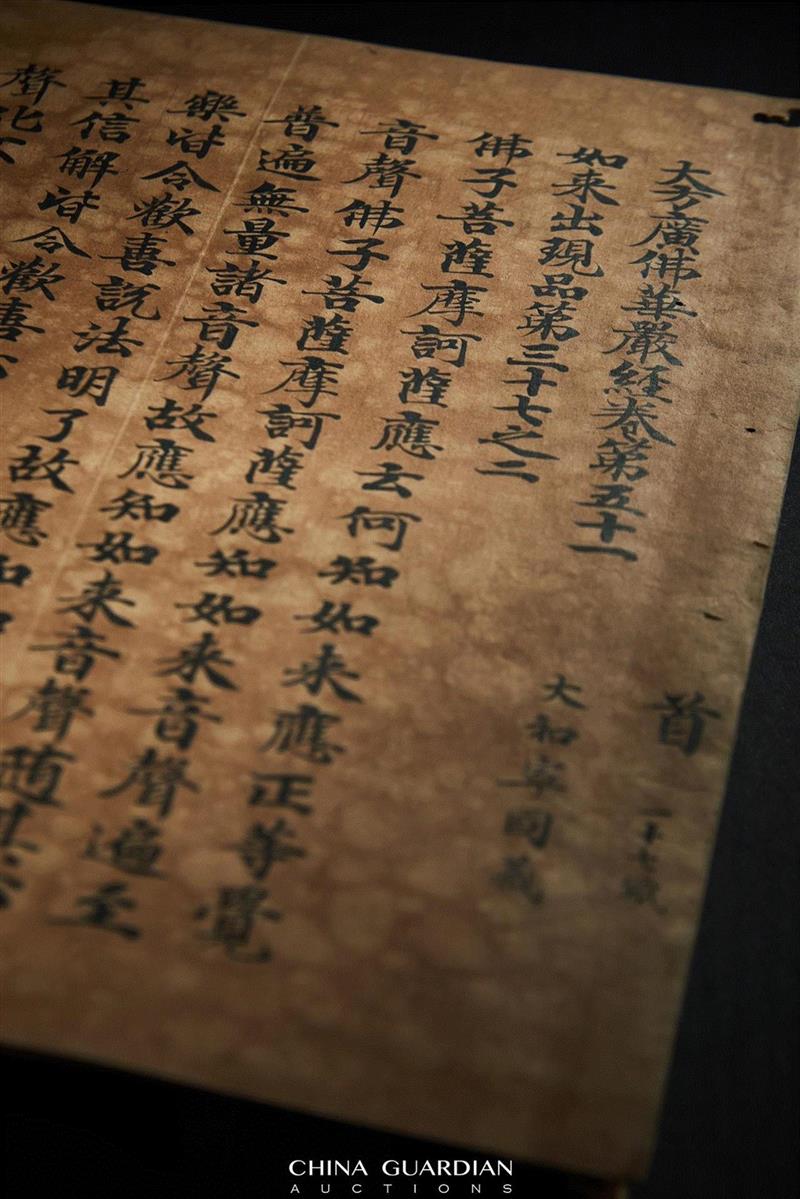 大方廣佛華嚴經卷第五十一
首
如來出現品第三十七之二
大和寧國藏
佛子菩薩摩訶薩應云何知如來應正等覺
音聲佛子菩薩摩訶薩應知如來音聲遍至
普遍無量諸音聲故應知如來音聲隨其心
樂皆令歡喜說法明了故應知如
其信解皆令歡喜
聲化不
CHINA GUARDIAN
AUCTIONS